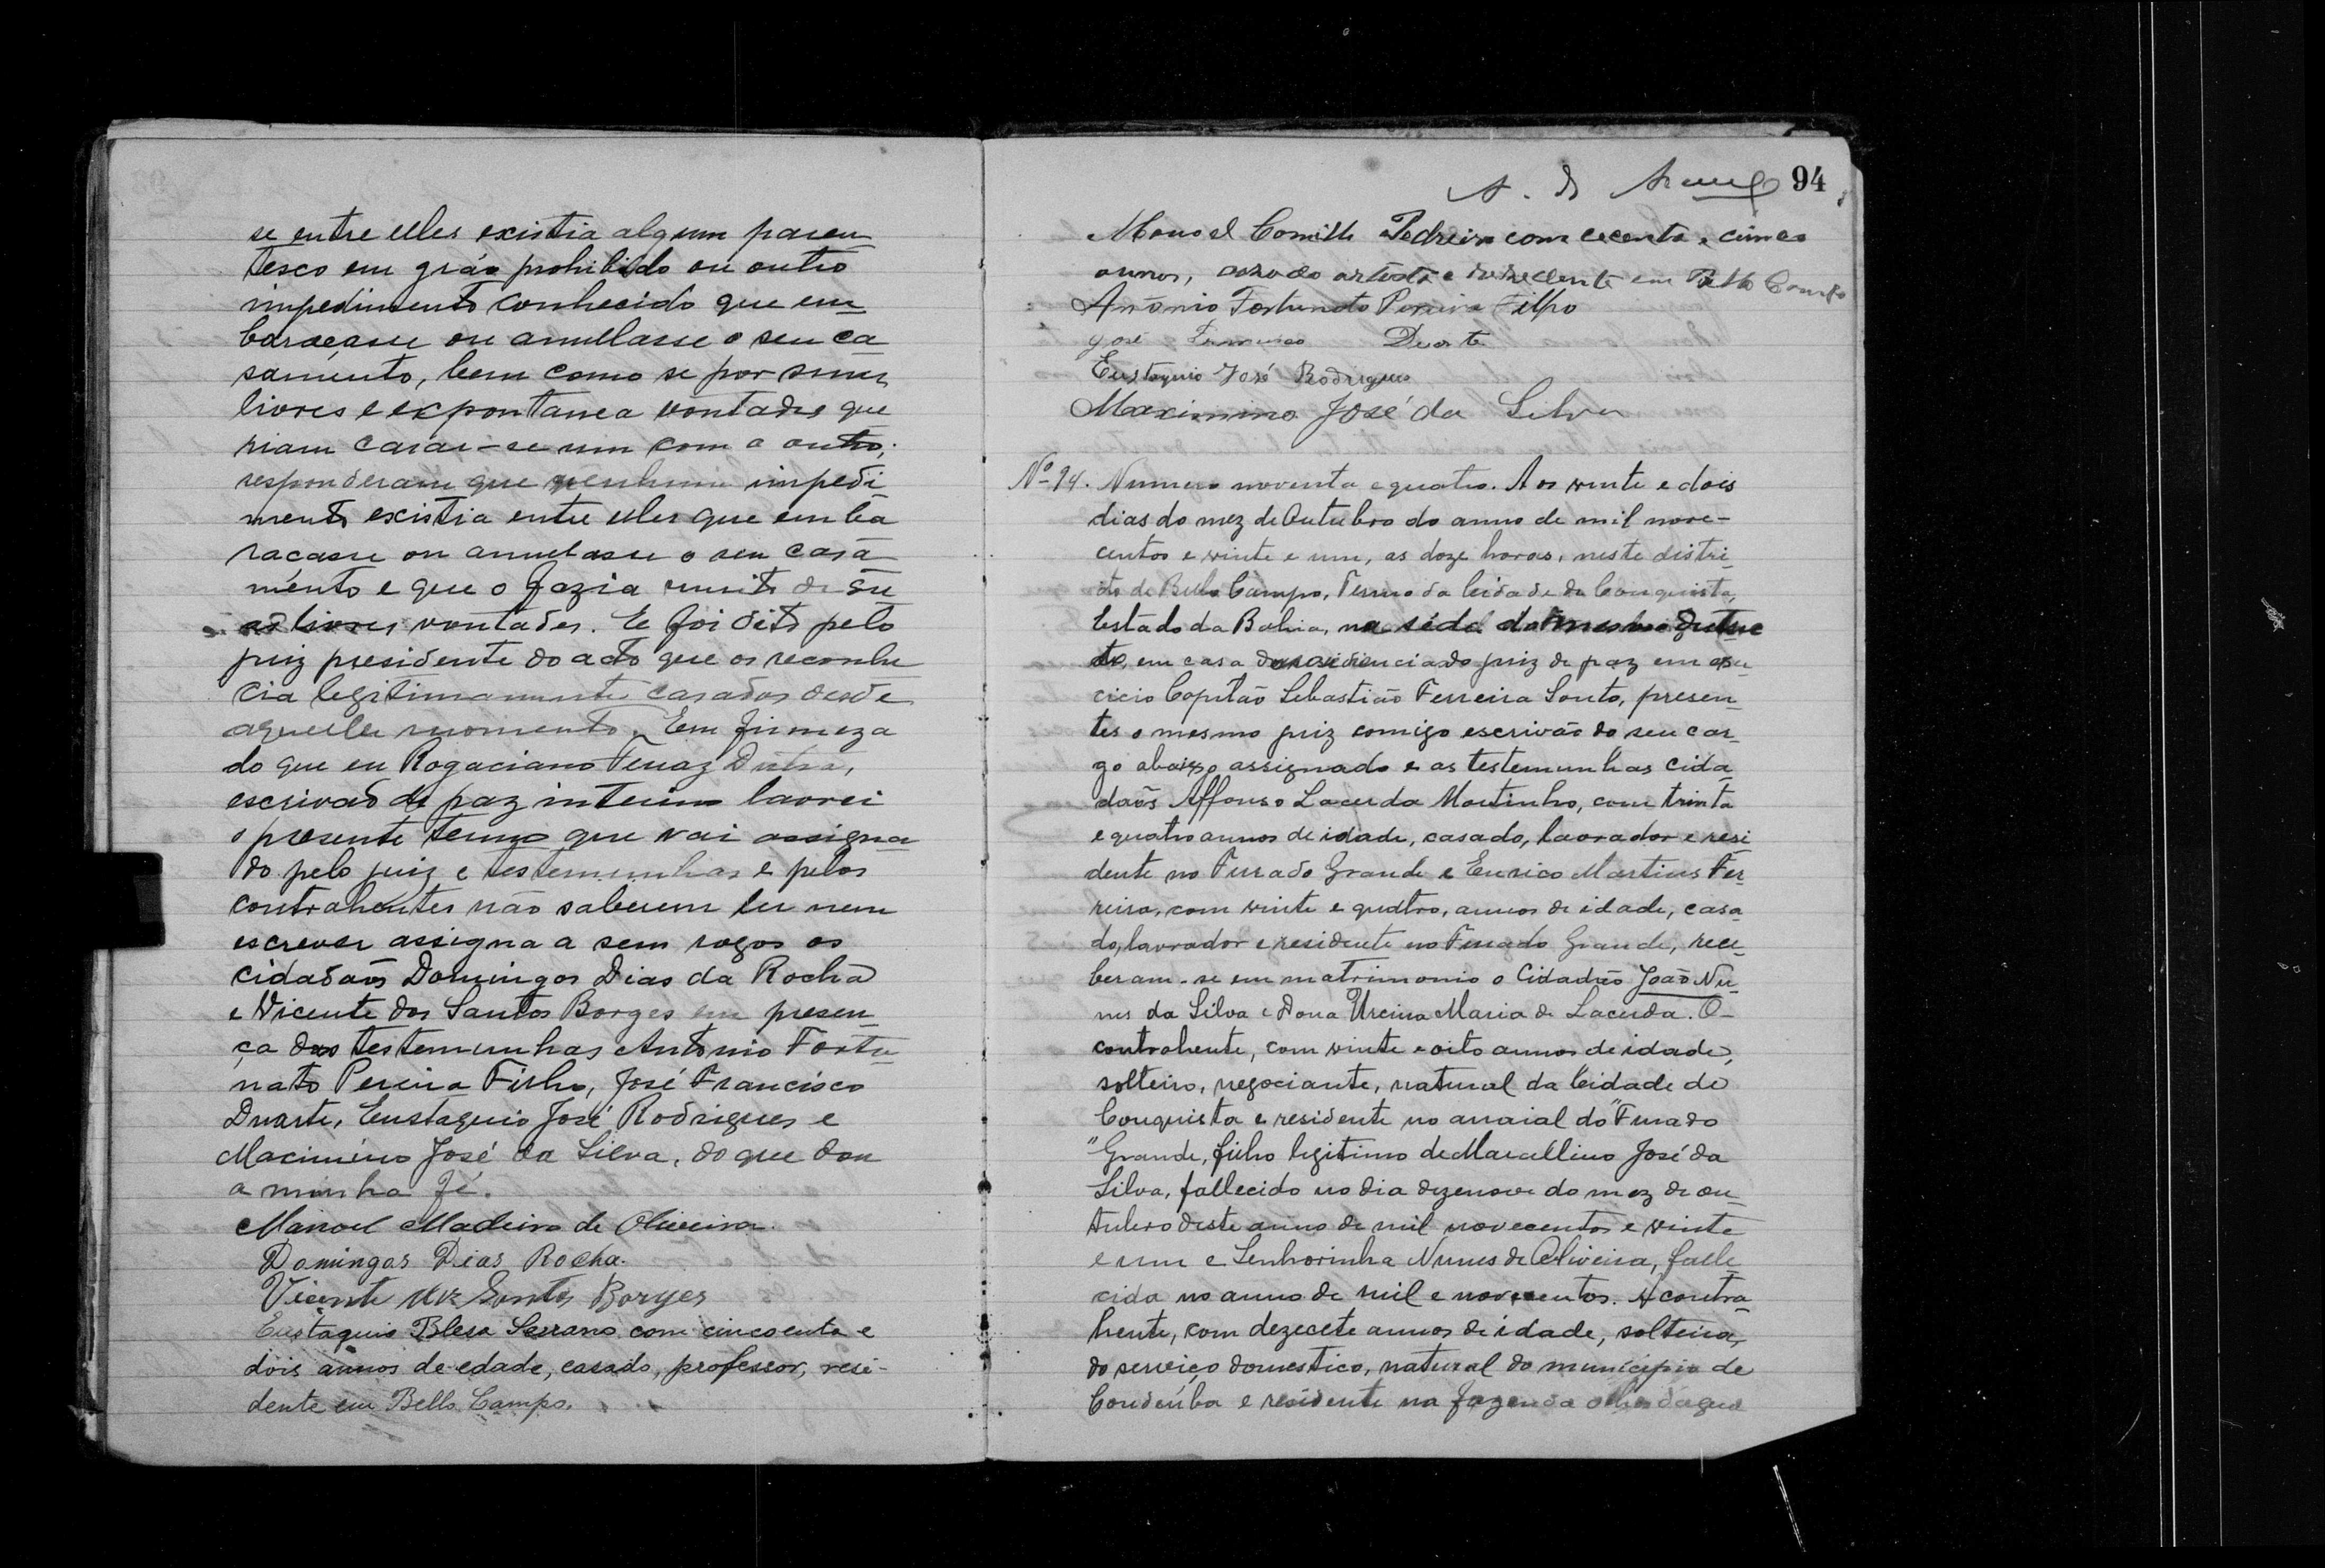 se entre elles existia algum paren
tesco em gráo prohibido ou outro
impedimento conhecido que em
baraçasse ou annullasse o seu ca
samento, bem como se por suas
livres e expontanea vontades que
riam casar-se um com o outro;
responderam que nenhum impedi
mento existia entre elles que emba
raçasse ou annulasse o seu casa
mento e que o fazia muito de su
as livres vontades. E foi dito pelo
juiz presidente do acto que os reconhe
cia legitimamente casados desde
aquelle momento. Em firmeza
do que eu Rogaciano Ferraz Dutra,
escrivão de paz interino lavrei
o presente termo que vai assigna
do pelo juiz e testemunhas e pelos
contrahentes não saberem ler nem
escrever assigna a seus rogos os
cidadãos Domingos Dias da Rocha
e Vicente dos Santos Borges em presen
ça das testemunhas Antonio Fortu
nato Pereira Filho, José Francisco
Duarte, Eustaquio José Rodrigues e
Macimino José da Silva, do que dou
a minha fé.
Manoel Madeira de Oliveira.
Domingos Dias Rocha.
Vicente dos Santos Borges
Eustaquio Blesa Serrano com cincoenta e
dois annos de edade, casado, professor, resi-
dente em Bello Campo.
94
Manoel Pedreira com cecenta e cinco
annos, casado artista e rezidente em Bello Campo
Antonio Fortunato Pereira Filho
José Francisco Duarte
Eustaquio José Rodrigues
Maximino José da Silva
Nº 94. Numero noventa e quatro. Aos vinte e dois
dias do mez de Outubro do anno de mil nove-
centos e vinte e um, as doze horas, neste distri-
cto de Bello Campo, Termo da Cidade da Conquista,
Estado da Bahia, na séde do mesmo distric
to, em casa da residencia do juiz de paz em exer
cicio Capitão Sebastião Ferreira Souto, presen
tes o mesmo juiz comigo escrivão do seu car-
go abaixo assignado e as testemunhas cida
dãos Affonso Lacerda Martinho, com trinta
e quatro annos de idade, casado, lavrador e resi
dente no Furado Grande e Eurico Martins Fer-
reira, com vinte e quatro, annos de idade, casa
do, lavrador e residente no Furado Grande, rece-
beram-se em matrimonio o Cidadão João Nu-
nes da Silva e Dona Ursina Maria de Lacerda. O-
contrahente, com vinte e oito annos de idade,
solteiro, negociante, natural da Cidade de
Conquista e residente no arraial do "Furado
"Grande, filho legitimo de Marcellino José da
Silva, fallecido no dia dezenove do mez de ou
tubro deste anno de mil novecentos e vinte
e um e Senhorinha Nunes de Oliveira, falle
cida no anno de mil e novecentos. A contra
hente, com dezecete annos de idade, solteira,
do serviço domestico, natural do municipio de
Condeúba e residente na fazenda olho dagua